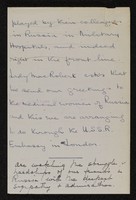 played by their colleagues
in Russia in Military
Hospitals, and indeed
right in the front line.
Lady MacRobert asks that
we send our greetings to
the medical women of Russia
and this we are arranging
to do through the U.S.S.R.
Embassy in London
are watching the struggle
of our friends in
Russia with the
sympathy & admiration